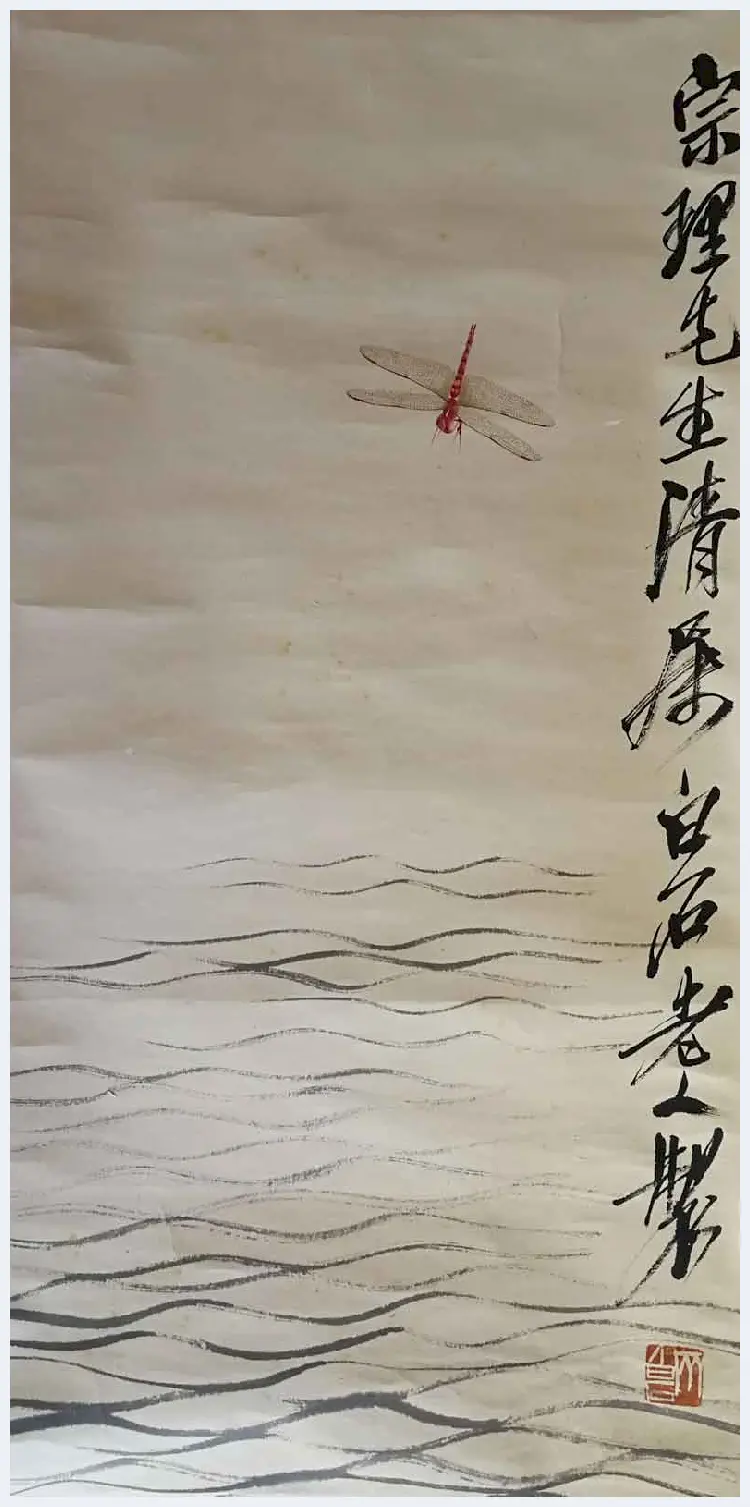 宗理先生清属白石老人製